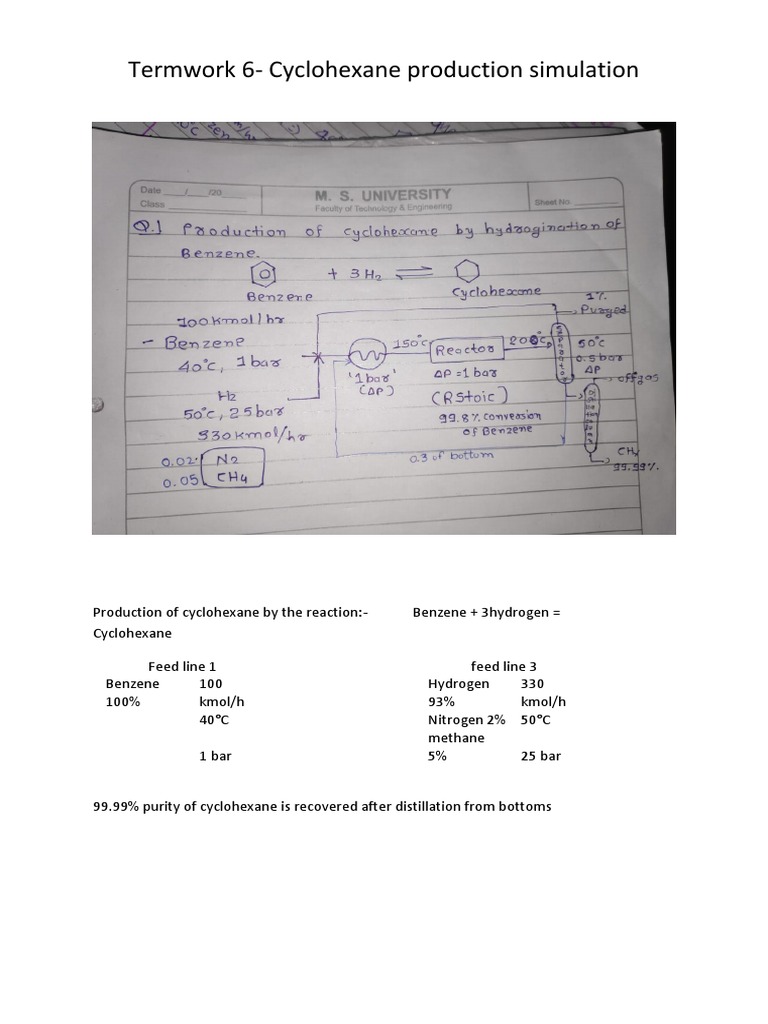 Termwork 6- Cyclohexane production simulation
Date ___/___/20___
Class
M. S. UNIVERSITY
Faculty of Technology & Engineering
Sheet No.
Q.1 Production of cyclohexane by hydragination of
Benzene.
+ 3H2 ⇌
Benzene
Cyclohexane
100kmol/hr
- Benzene
40°C, 1bar
H2
50°C, 25bar
330kmol/hr
0.02 N2
0.05 CH4
'1 bar'
(ΔP)
150°C
Reactor
ΔP = 1 bar
(RStoic)
99.8% convesion
of Benzene
200°C
0.3 of bottom
1%
Purged
50°C
0.5 bar
ΔP
offgas
99.99%.
Production of cyclohexane by the reaction:- Benzene + 3hydrogen =
Cyclohexane
Feed line 1 feed line 3
Benzene 100 Hydrogen 330
100% kmol/h 93% kmol/h
40°C Nitrogen 2% 50°C
methane
1 bar 5% 25 bar
99.99% purity of cyclohexane is recovered after distillation from bottoms